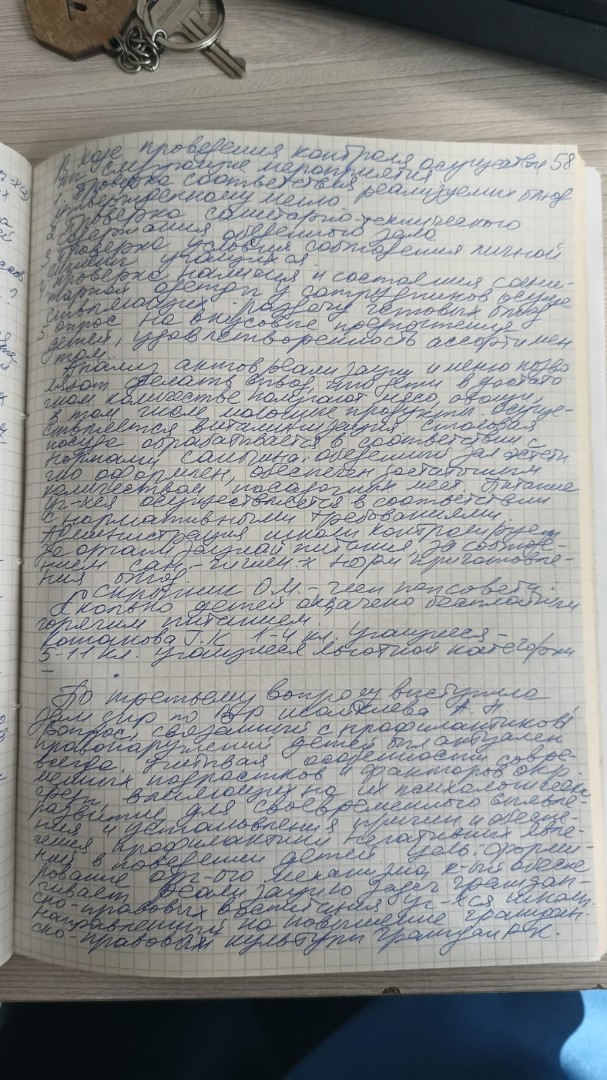 58
В ходе проведения контроля осуществлен
ны следующие мероприятия
1. Проверка соответствия реализуемых блюд
утвержденному меню
2. Проверка санитарно-технического
содержания обеденного зала
3. Проверка условия соблюдения личной
гигиены учащихся
4. Проверка наличия и состояния сани-
тарной одежды у сотрудников осуще
ствляющих раздачу готовых блюд
5. опрос на вкусовые предпочтения
детей, удовлетворенность ассортимен
том.
Анализ актов реализации и меню позво
ляют сделать вывод, что дети в достато
чном количестве получают мясо, овощи,
в том числе молочные продукты. Осуще-
ствляется витаминизация. Столовая
посуда обрабатывается в соответствии с
нормами санпина, обеденный зал эстети
чно оформлен, обеспечен достаточным
количеством посадочных мест. Питание
уч-хся осуществляется в соответствии
с нормативными требованиями.
Администрация школы контролирует
за организацией питания, за соблюде-
нием сан.-гигиен-х норм приготовле-
ния блюд.
Скрыпник О.М. - член попсовета.
Сколько детей охвачено бесплатным
горячим питанием.
Г.К 1-4 кл. учащиеся -
5-11 кл. учащиеся льготной категории
-
По третьему вопросу выступила
Зам дир по ВР А Н
Вопрос, связанный с профилактикой
правонарушений детей был актуален
всегда. Учитывая особенности совре-
менных подростков и факторов окр.
среды влияющих на их психологическое
развитие для своевременного выявле-
ния и установления причин и обеспе-
чения профилактики негативных явле-
ний в поведении детей. Цель: форми-
рование орг-ого механизма, к-ый обеспе
чивает реализацию задач граждан-
ско-правовых воспитания уч-хся школы
направленный на повышение граждан-
ско-правовой культуры граждан РК.